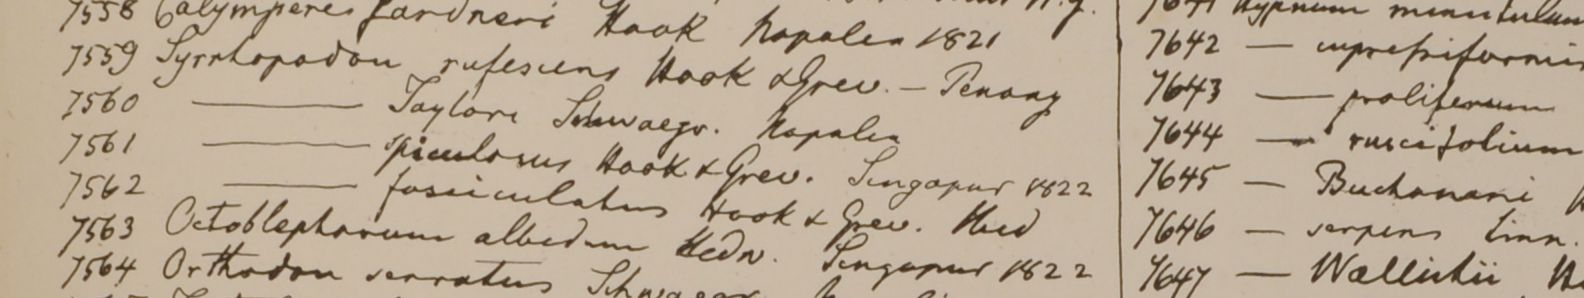 7558 Calymperes Gardneri Hook Napalia 1821
7559 Syrrhopodon rufescens Hook & Grev. — Penang
7560 ——— Taylori Schwaegr. Napalia
7561 ——— spiculosus Hook & Grev. Singapur 1822
7562 ——— fasciculatus Hook & Grev. Ibid
7563 Octoblepharum albidum Hedw. Singapur 1822
7564 Orthodon serratus Schwaegr
7641 Hypnum minutulum
7642 — cupressiformis
7643 — proliferum
7644 — ruscifolium
7645 — Buchanani
7646 — serpens Linn.
7647 — Wallichii